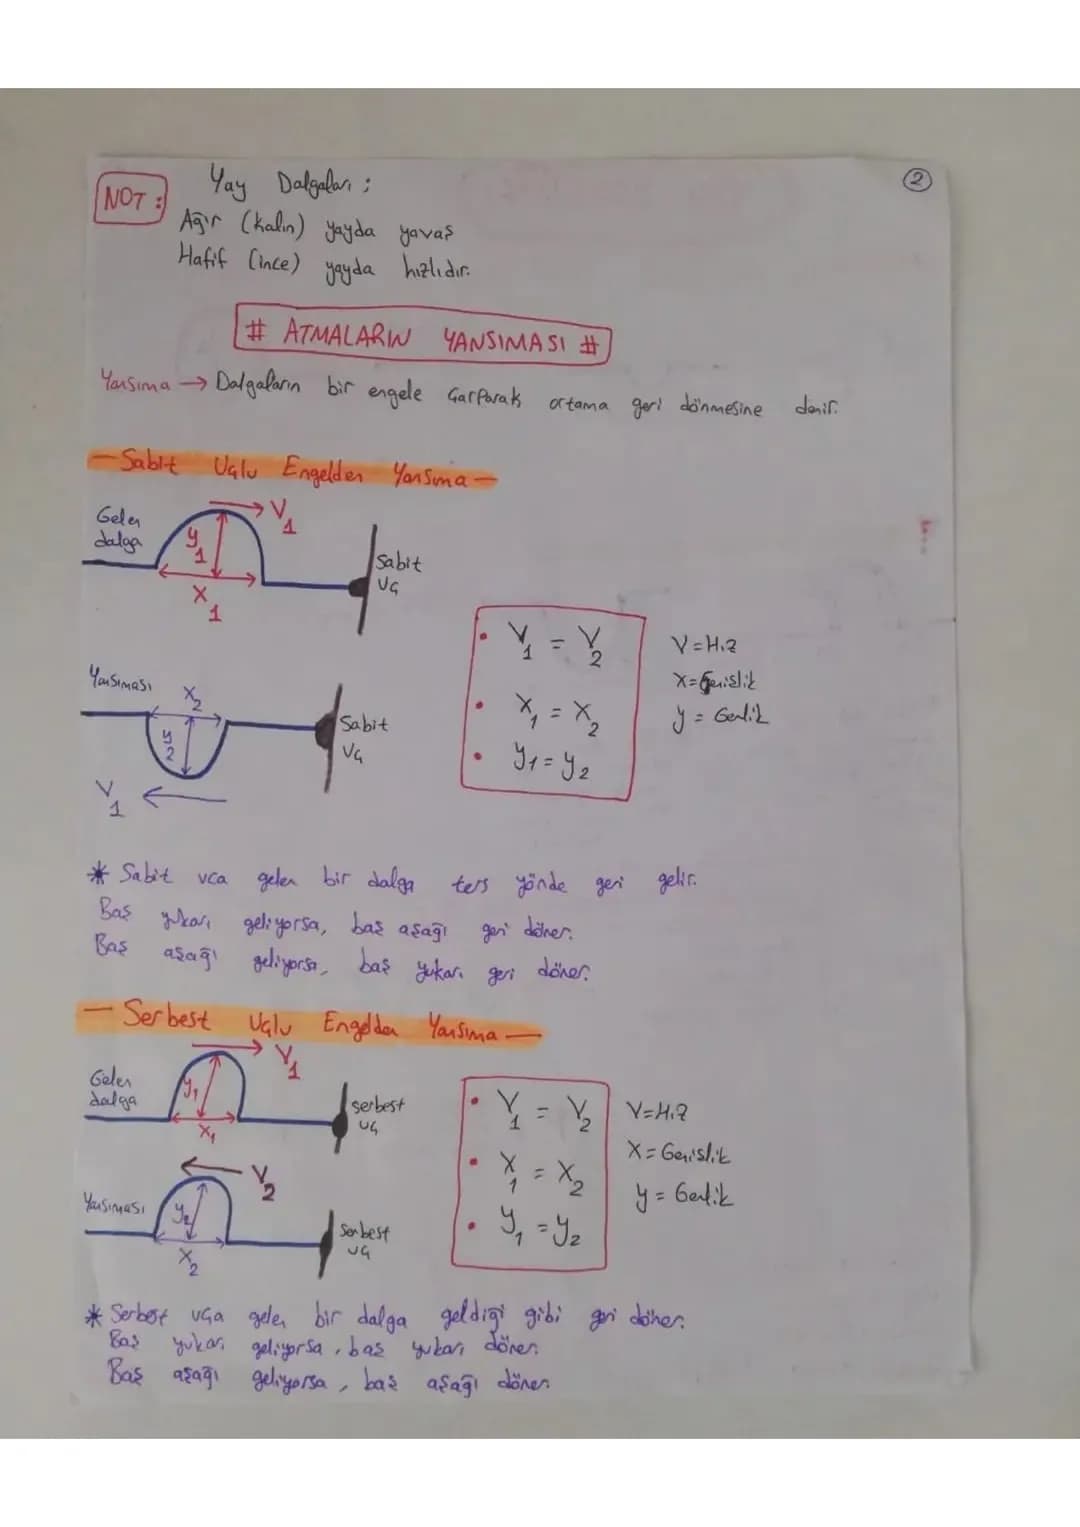 2
NOT :
Yay Dalgaları ;
Ağır (kalın) yayda yavaş
Hafif (ince) yayda hızlıdır.
# ATMALARIN YANSIMASI #
Yansıma → Dalgaların bir engele Çarparak ortama geri dönmesine denir.
- Sabit Uçlu Engelden Yansıma -
Gelen
dalga
V1
y1
X1
Sabit
uç
Yansıması
X2
y2
V1
Sabit
uç
• V1 = V2
• X1 = X2
• y1 = y2
V = Hız
X = Genişlik
y = Genlik
* Sabit uca gelen bir dalga ters yönde geri gelir.
Baş yukarı geliyorsa, baş aşağı geri döner.
Baş aşağı geliyorsa, baş yukarı geri döner.
- Serbest Uçlu Engelden Yansıma -
Gelen
dalga
V1
y1
X1
serbest
uç
Yansıması
V2
y2
X2
Serbest
uç
• V1 = V2
• X1 = X2
• y1 = y2
V = Hız
X = Genişlik
y = Genlik
* Serbest uca gelen bir dalga geldiği gibi geri döner.
Baş yukarı geliyorsa, baş yukarı döner.
Baş aşağı geliyorsa, baş aşağı döner.